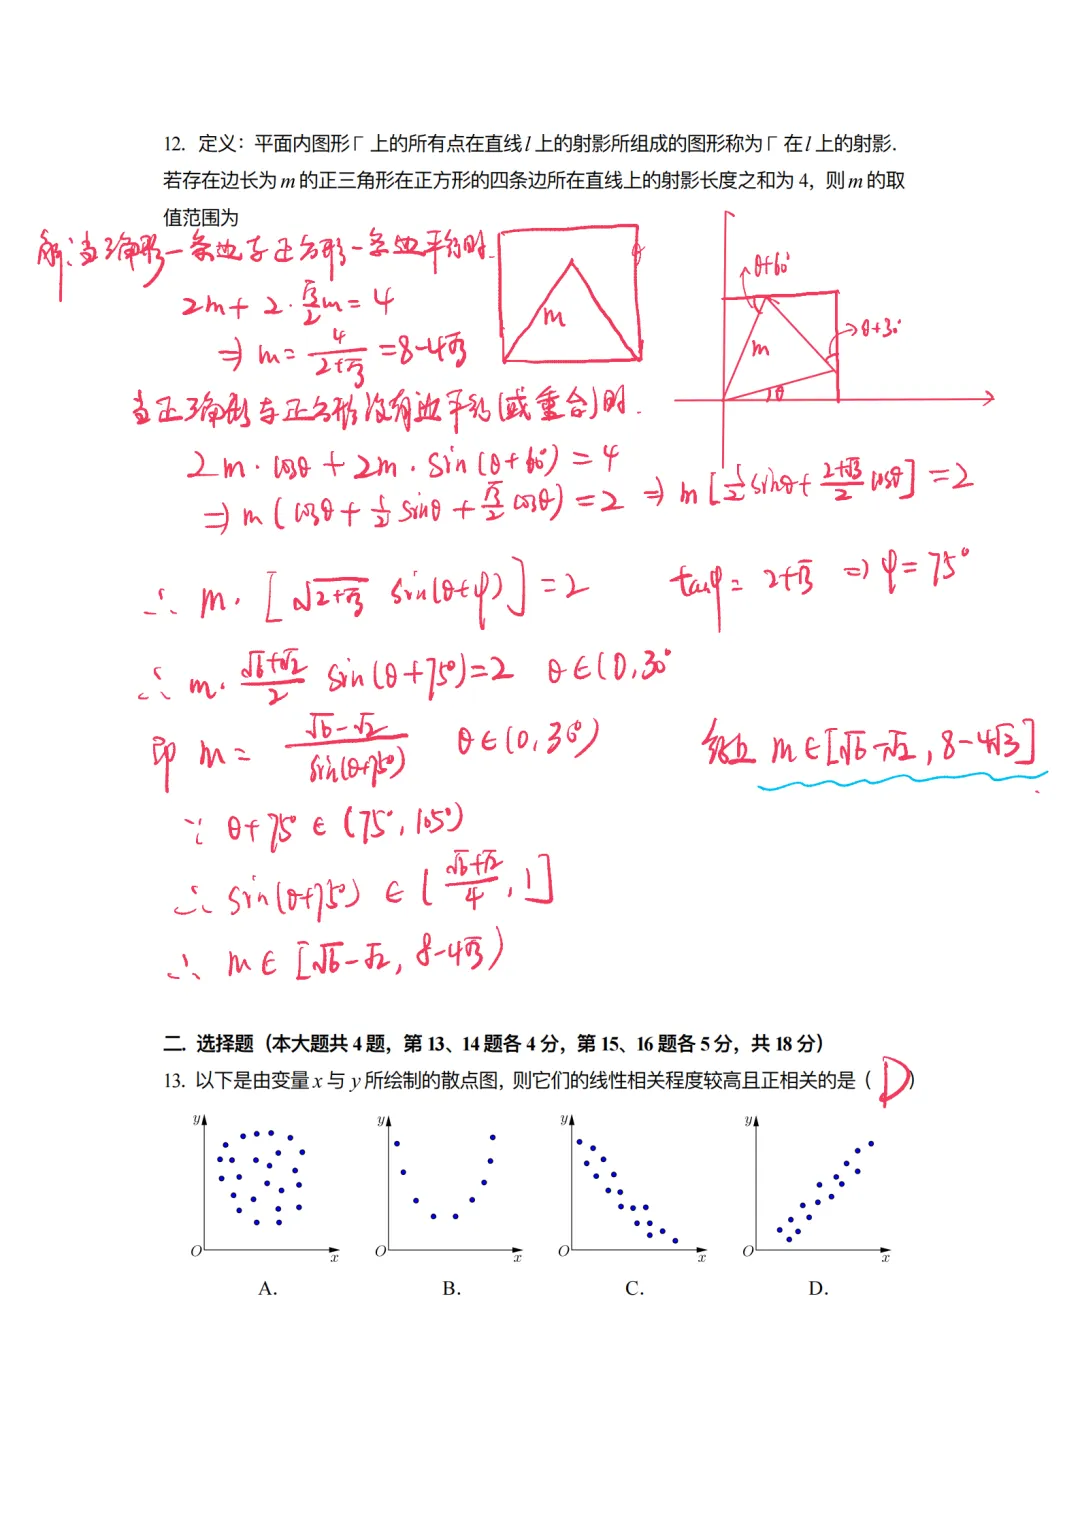 12. 定义：平面内图形Γ上的所有点在直线l上的射影所组成的图形称为Γ在l上的射影.
若存在边长为m的正三角形在正方形的四条边所在直线上的射影长度之和为 4，则m的取
值范围为
解：当三角形一条边与正方形一条边平行时.
2m+2·√3/2 m=4
⇒ m=4/(2+√3)=8-4√3
m
θ+60°
θ+30°
m
θ
当正三角形与正方形没有边平行(或重合)时.
2m·cosθ+2m·sin(θ+60°)=4
⇒ m(cosθ+1/2 sinθ+√3/2 cosθ)=2 ⇒ m[1/2 sinθ+(2+√3)/2 cosθ]=2
∴ m·[√(2+√3) sin(θ+φ)]=2 tanφ=2+√3 ⇒ φ=75°
∴ m·(√6+√2)/2 sin(θ+75°)=2 θ∈(0,30°
即 m=(√6-√2)/sin(θ+75°) θ∈(0,30°) 综上 m∈[√6-√2,8-4√3]
∵ θ+75°∈(75°,105°)
∴ sin(θ+75°)∈((√6+√2)/4,1]
∴ m∈[√6-√2,8-4√3)
二. 选择题（本大题共 4 题，第 13、14 题各 4 分，第 15、16 题各 5 分，共 18 分）
13. 以下是由变量x与y所绘制的散点图，则它们的线性相关程度较高且正相关的是（D）
y y y y
O x O x O x O x
A. B. C. D.